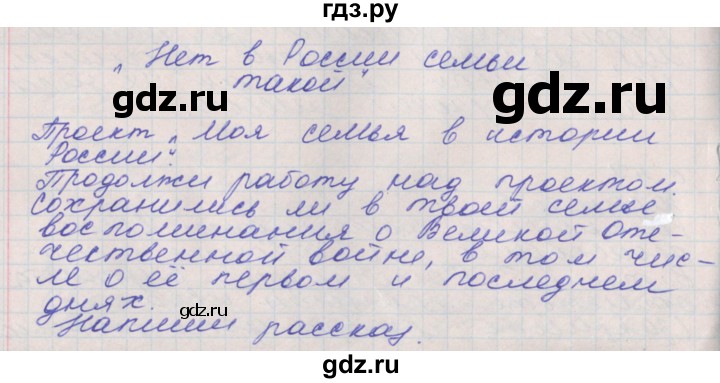 гдз.ру
„Нет в России семьи
такой"
gdz.ru
gdz.ru
Проект „Моя семья в истории
России".
Продолжи работу над проектом.
Сохранились ли в твоей семье
воспоминания о Великой Оте-
чественной войне, в том чис-
ле о её первом и последнем
днях.
Напиши рассказ.
gdz.ru
gdz.ru
gdz.ru
gdz.ru